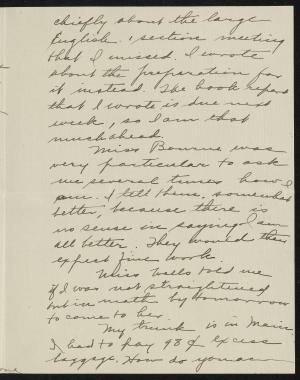 chiefly about the large
English 1 section meeting
that I missed. I wrote
about the preparation for
it instead. The book report
that I wrote is due next
week, so I am that
much ahead.
Miss Bourne was
very particular to ask
me several times how I
am. I tell them, somewhat
better, because there is
no sense in saying I am
all better. They would then
expect fine work.
Miss Wells told me
if I was not straightened
out in math by tomorrow
to come to her.
My trunk is in Main.
I had to pay 98¢ excess
baggage. How do you